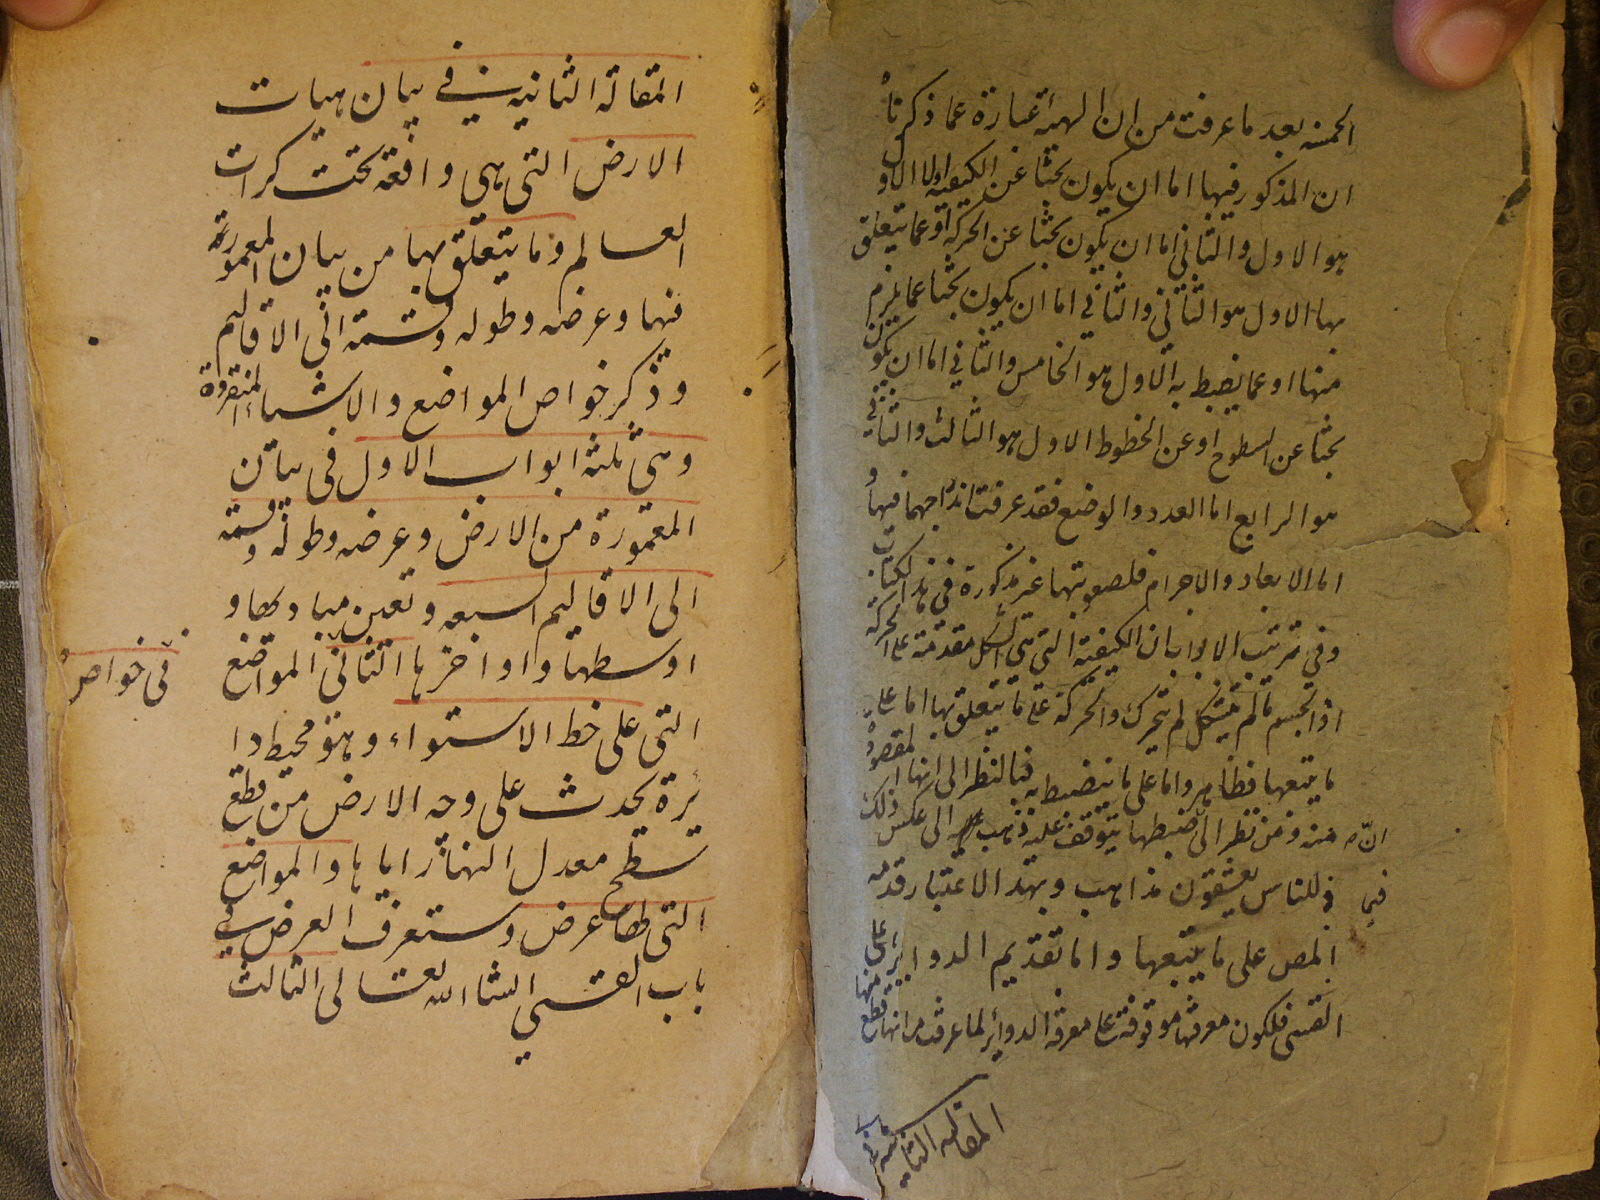 الخمسة بعد ما عرفت من ان الهيئة عبارة عما ذكرناه
ان المذكور فيها اما ان يكون بحثا عن الكيفية اولا الاول
هو الاول والثاني اما ان يكون بحثا عن الحركة او عما يتعلق
بها الاول هو الثاني والثاني اما ان يكون بحثا عما يلزم
منها او عما يضبط به الاول هو الخامس والثاني اما ان يكون
بحثا عن السطوح او عن الخطوط الاول هو الثالث والثاني
هو الرابع اما العدد والوضع فقد عرفت اندراجهما فيها و
اما الابعاد والاجرام فلصعوبتها غير مذكورة في هذا الكتاب
وفي ترتيب الابواب ان الكيفية التي هي الشكل مقدمة على الحركة
اذ الجسم ما لم يتشكل لم يتحرك والحركة على ما يتعلق بها اما على
ما يتبعها فظاهر واما على ما ينضبط به فبالنظر الى انها المقصودة
منه ومن نظر الى ان ضبطها يتوقف عليه ذهب الى عكس ذلك
فللناس فيما يعشقون مذاهب وبهذا الاعتبار قدمه
المص على ما يتبعها واما تقديم الدواير على
القسى فلكون معرفتها موقوفة على معرفة الدواير لما عرفت من انها قطع منها
المقالة الثانية في
المقالة الثانية في بيان هيات
الارض التي هي واقعة تحت كرات
العالم وما يتعلق بها من بيان المعمورة
فيها وعرضه وطوله وقسمته الى الاقاليم
وذكر خواص المواضع والاشياء المتفرقة
وهي ثلثة ابواب الاول في بيان
المعمورة من الارض وعرضه وطوله وقسمته
الى الاقاليم السبعه وتعين مباديها و
اوسطها واواخرها الثاني المواضع
في خواص
التي على خط الاستواء وهو محيط دا
ئرة يحدث على وجه الارض من قطع
سطح معدل النهار اياها والمواضع
التي لها عرض وستعرف العرض في
باب القسي انشا الله تعالى الثالث